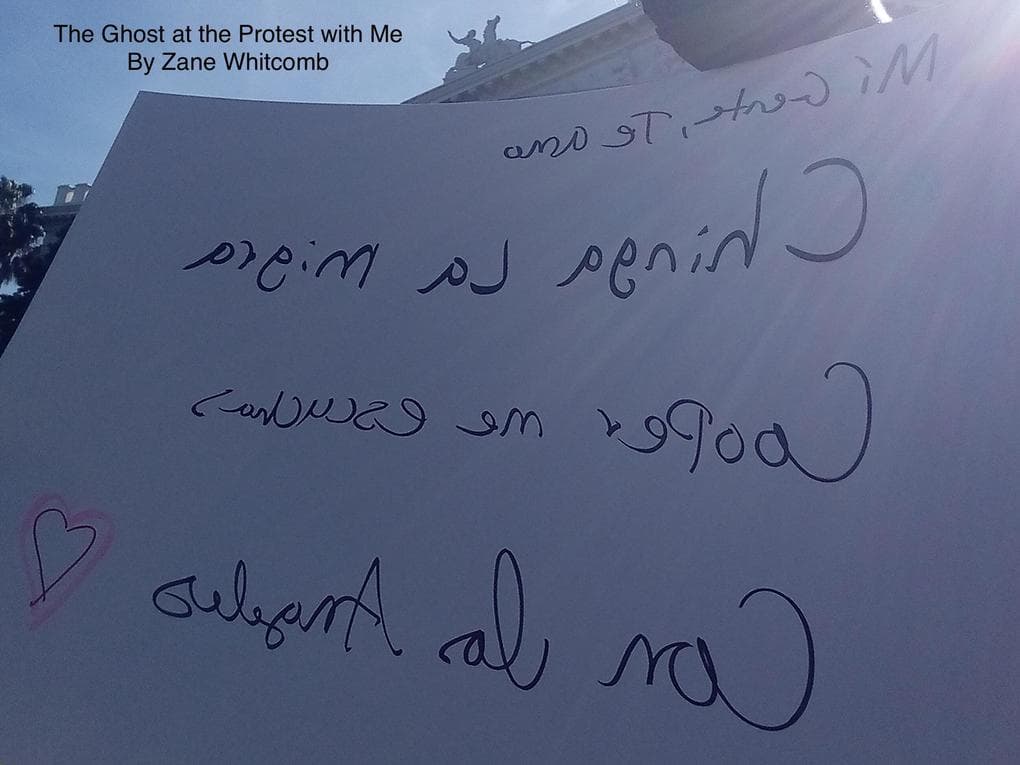 The Ghost at the Protest with Me
By Zane Whitcomb
Mi Gente, Te amo
Chinga La migra
Cooper me escuchas
la